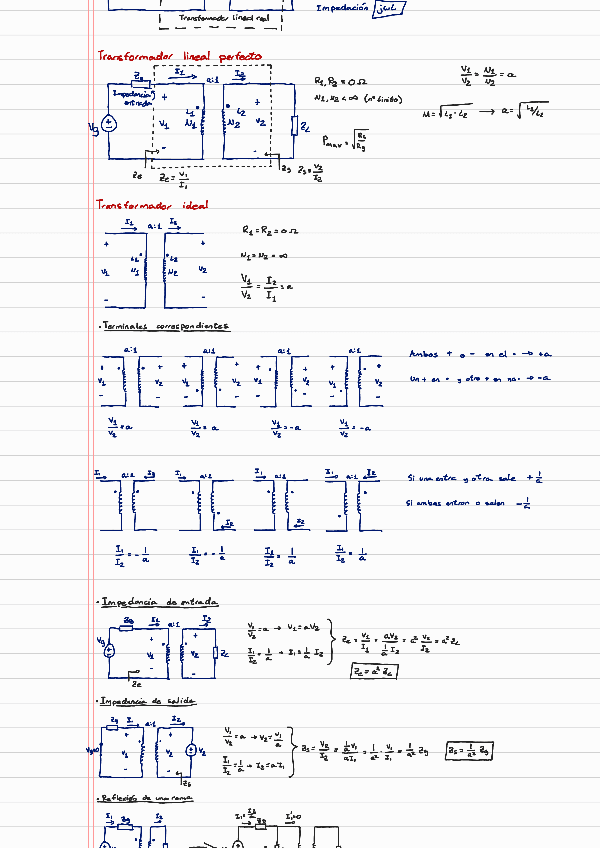 Transformador lineal real
Impedancia jωL
Transformador lineal perfecto
Zg I₁ a:1 I₂
Impedancia entrada
Vg + V₁ - L₁ N₁ L₂ N₂ + V₂ - ZL
Ze Ze = V₁/I₁ Zs Zs = V₂/I₂
R₁, R₂ = 0 Ω
N₁, N₂ < ∞ (nº finito)
V₁/V₂ = N₁/N₂ = a
M = √(L₁·L₂) → a = √(L₁/L₂)
Transformador ideal
I₁ a:1 I₂
+ V₁ - L₁ N₁ L₂ N₂ + V₂ -
R₁ = R₂ = 0 Ω
N₁ = N₂ = ∞
V₁/V₂ = I₂/I₁ = a
· Terminales correspondientes
a:1 a:1 a:1 a:1
V₁ V₂ V₁ V₂ V₁ V₂ V₁ V₂
Ambos + o - en el · → +a
Un + en · y otro + en no · → -a
V₁/V₂ = a V₁/V₂ = a V₁/V₂ = -a V₁/V₂ = -a
I₁ a:1 I₂ I₁ a:1 I₂ I₁ a:1 I₂ I₁ a:1 I₂
Si una entra y otra sale +1/a
Si ambas entran o salen -1/a
I₁/I₂ = -1/a I₁/I₂ = -1/a I₁/I₂ = 1/a I₁/I₂ = 1/a
· Impedancia de entrada
Zg I₁ a:1 I₂
Vg + V₁ - + V₂ - ZL
Ze
V₁/V₂ = a → V₁ = aV₂
I₁/I₂ = 1/a → I₁ = 1/a I₂
Ze = V₁/I₁ = aV₂/(1/a I₂) = a² V₂/I₂ = a² ZL
Ze = a² ZL
· Impedancia de salida
Zg I₁ a:1 I₂
Vg=0 + V₁ - + V₂ - V₂
Zs
V₁/V₂ = a → V₂ = V₁/a
I₁/I₂ = 1/a → I₂ = aI₁
Zs = V₂/I₂ = (1/a V₁)/(aI₁) = 1/a² · V₁/I₁ = 1/a² Zg
Zs = 1/a² Zg
· Reflexión de una rama
I₁ Zg I₂